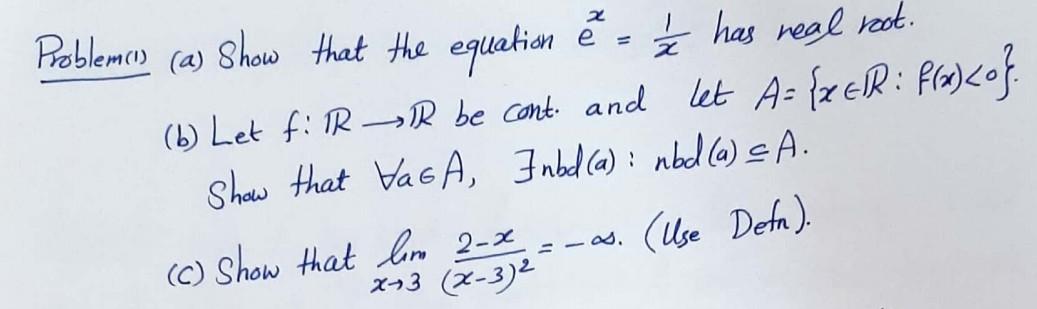 Problem(1) (a) Show that the equation e^x = 1/x has real root.
(b) Let f: ℝ → ℝ be cont. and let A = {x ∈ ℝ : f(x) < 0}.
Show that ∀a ∈ A, ∃ nbd(a) : nbd(a) ⊆ A.
(C) Show that lim_{x→3} (2-x)/(x-3)^2 = -∞. (Use Defn).